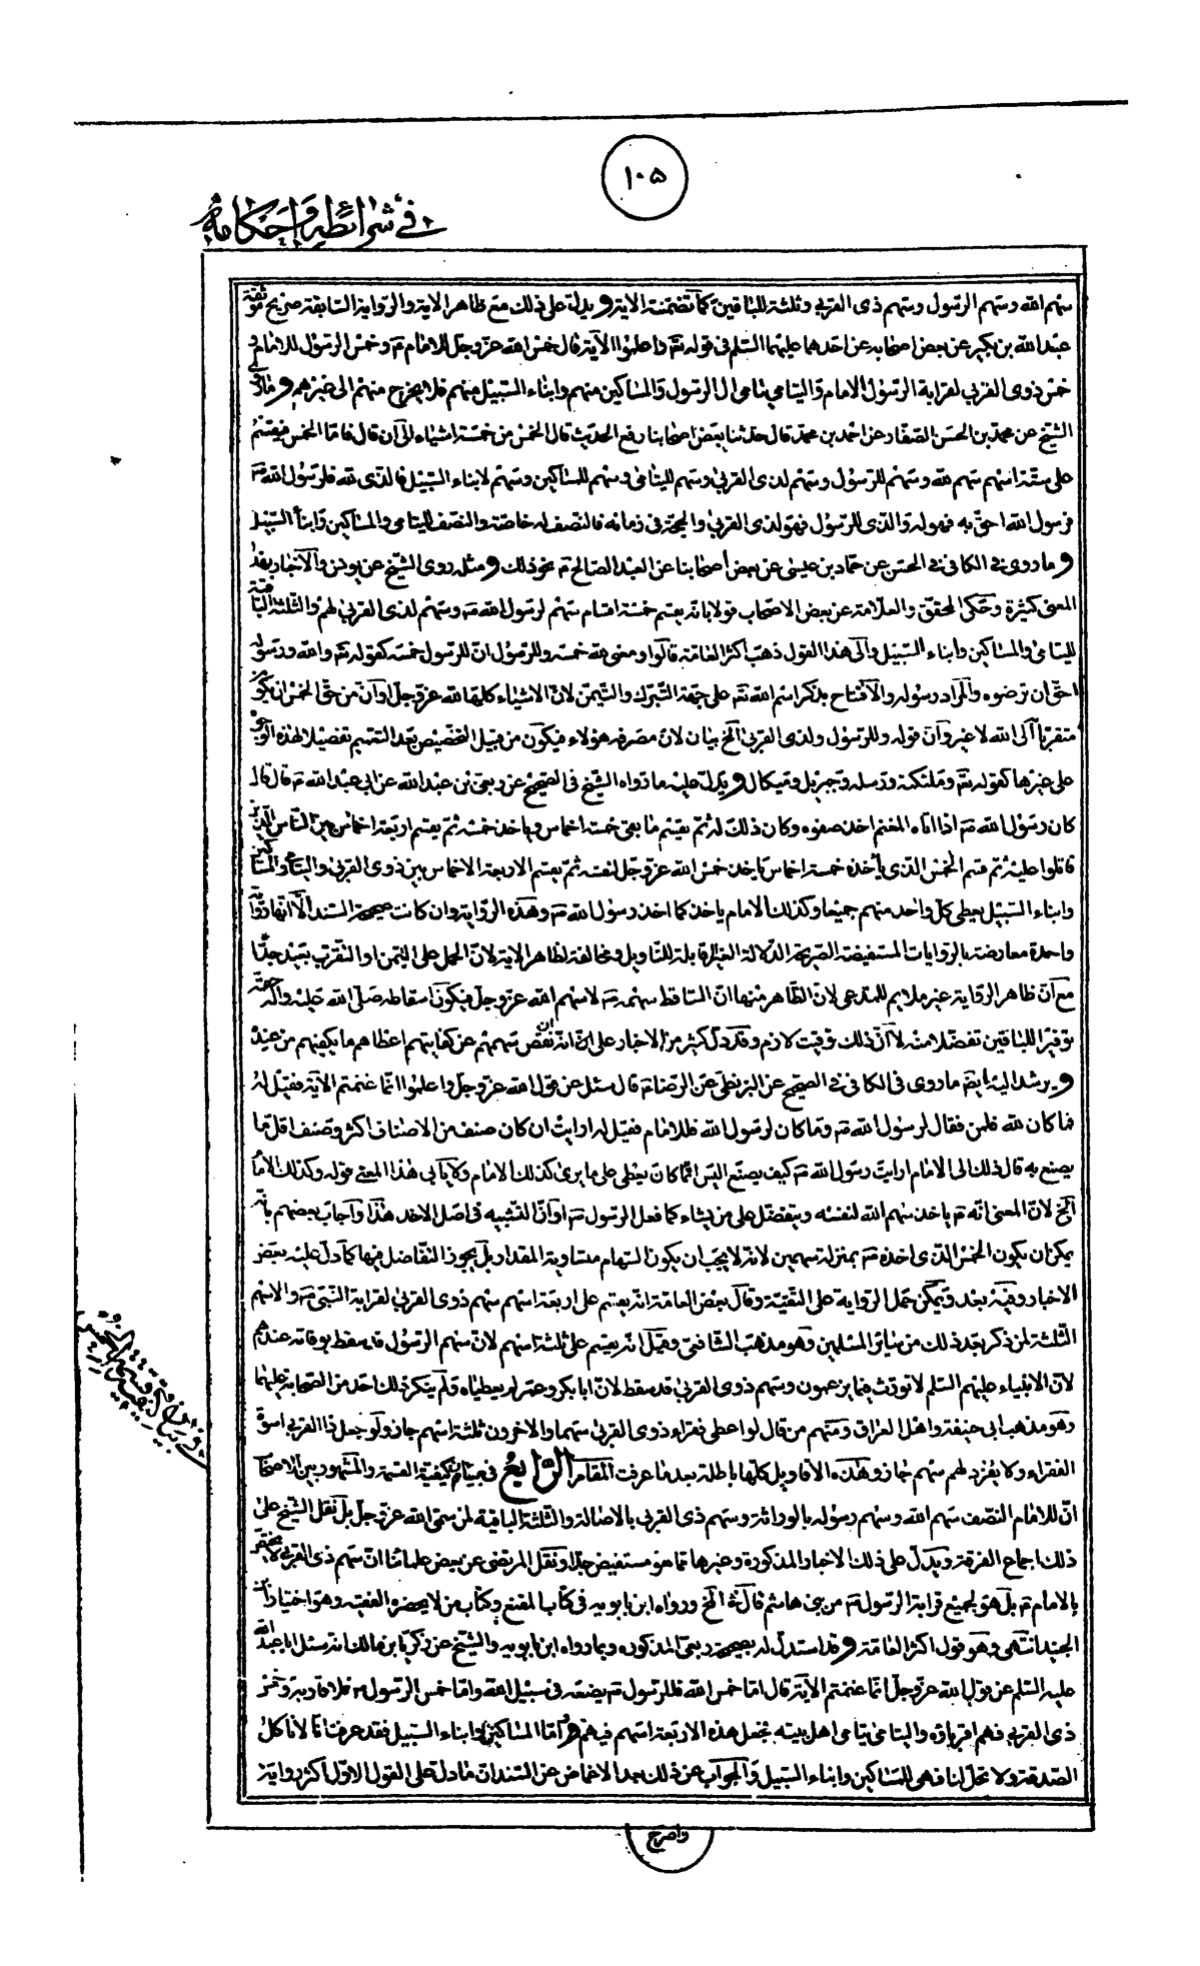 ١٠٥
في شرائطه واحكامه
سهم الله وسهم الرسول وسهم ذى القربى وثلثة للباقين كما تضمنت الاية ويدل على ذلك مع ظاهر الاية والرواية السابقة صريح موثقة
عبدالله بن بكير عن بعض اصحابه عن احدهما عليهما السلم فى قوله تع واعلموا الآية قال خمس الله عزوجل للامام ع وخمس الرسول للامام و
خمس ذوى القربى لقرابة الرسول الامام واليتامى يتامى ال الرسول والمساكين منهم وابناء السبيل منهم فلا يخرج منهم الى غيرهم وما رواه
الشيخ عن محمد بن الحسن الصفار عن احمد بن محمد قال حدثنا بعض اصحابنا رفع الحديث قال الخمس من خمسة اشياء الى ان قال فاما الخمس فيقسم
على ستة اسهم سهم لله وسهم للرسول وسهم لذى القربى وسهم لليتامى وسهم للمساكين وسهم لابناء السبيل فالذى لله فلرسول الله ص
فرسول الله احق به فهو له والذى للرسول فهو لذى القربى والحجة فى زمانه فالنصف له خاصة والنصف لليتامى والمساكين وابناء السبيل
وما روى فى الكافى فى الحسن عن حماد بن عيسى عن بعض أصحابنا عن العبد الصالح ع نحو ذلك ومثله روى الشيخ عن يونس والاخبار بهذا
المعنى كثيرة وحكى المحقق والعلامة عن بعض الاصحاب قولا بانه يقسم خمسة اقسام سهم لرسول الله ص وسهم لذى القربى لهم والثلثة الباقية
لليتامى والمساكين وابناء السبيل والى هذا القول ذهب اكثر العامة قالوا ومعنى لله خمسه وللرسول ان للرسول خمسه كقوله تع والله ورسوله
احق ان ترضوه والمراد رسوله والافتتاح بذكر اسم الله تع على جهة التبرك والتيمن لان الاشياء كلها لله عزوجل او ان من حق الخمس ان يكون
متقربا الى الله لا غير وان قوله وللرسول ولذى القربى الخ بيان لان مصرفه هؤلاء فيكون من قبيل التخصيص بعد التعميم تفضيلا لهذه الوجوه
على غيرها كقوله تع وملئكته ورسله وجبريل وميكال ويدل عليه ما رواه الشيخ فى الصحيح عن ربعى بن عبدالله عن ابى عبدالله ع قال قال
كان رسول الله ص اذا اتاه المغنم اخذ صفوه وكان ذلك له ثم يقسم ما بقى خمسة اخماس وياخذ خمسه ثم يقسم اربعة اخماس بين الناس الذين
قاتلوا عليه ثم قسم الخمس الذى يأخذه خمسة اخماس ياخذ خمس الله عزوجل لنفسه ثم يقسم الاربعة الاخماس بين ذوى القربى واليتامى والمساكين
وابناء السبيل يعطى كل واحد منهم جميعا وكذلك الامام ياخذ كما اخذ رسول الله ص وهذه الرواية وان كانت صحيحة السند الا انها رواية
واحدة معارضة بالروايات المستفيضة الصريحة الدلالة الغير القابلة للتاويل ومخالفة لظاهر الاية لان الحمل على التيمن او التقرب بعيد جدا
مع ان ظاهر الرواية غير ملايم للمدعى لان الظاهر منها ان الساقط سهمه ص لا سهم الله عزوجل فيكون اسقاطه صلى الله عليه واله حقه
توفيرا للباقين تفضلا منه لا ان ذلك توقيت لازم وقد دل كثير من الاخبار على انه ان نقص سهمهم عن كفايتهم اعطاهم ما يكفيهم من عنده
ويرشد اليه ايضا ما روى فى الكافى فى الصحيح عن البزنطى عن الرضا ع قال سئل عن قول الله عزوجل واعلموا انما غنمتم الآية فقيل له
فما كان لله فلمن فقال لرسول الله ص وما كان لرسول الله فللامام فقيل له ارايت ان كان صنف من الاصناف اكثر وصنف اقل ما
يصنع به قال ذلك الى الامام ارايت رسول الله ص كيف يصنع اليس انما كان يعطى على ما يرى كذلك الامام ولا يأبى هذا المعنى قوله وكذلك الامام
الخ لان المعنى انه ع ياخذ سهم الله لنفسه ويتفضل على من يشاء كما فعل الرسول ص او ان التشبيه فى اصل الاخذ هذا واجاب بعضهم بانه
يمكن ان يكون الخمس الذى اخذه ص بمنزلة سهمين لانه لا يجب ان يكون السهام متساوية المقدار بل يجوز التفاضل فيها كما دل عليه بعض
الاخبار وفيه بعد ويمكن حمل الرواية على التقية وقال بعض العامة انه يقسم على اربعة اسهم سهم ذوى القربى لقرابة النبى ص والاسهم
الثلثة لمن ذكر بعد ذلك من سائر المسلمين وهو مذهب الشافعى وقيل انه يقسم على ثلثة اسهم لان سهم الرسول قد سقط بوفاته عندهم
لان الانبياء عليهم السلم لا تورث فيما يزعمون وسهم ذوى القربى قد سقط لان ابا بكر وعمر لم يعطياه ولم ينكر ذلك احد من الصحابة عليهما
وهو مذهب ابى حنيفة واهل العراق ومنهم من قال لو اعطى فقراء ذوى القربى سهما والاخرون ثلثة اسهم جاز ولو جعل ذا القربى اسوة
الفقراء ولا يفرد لهم سهم جاز وهذه الاقاويل كلها باطلة بعد ما عرفت المقام الرابع فى بيان كيفية القسمة والمشهور بين الاصحاب
ان للامام النصف سهم الله وسهم رسوله بالوراثة وسهم ذى القربى بالاصالة والثلثة الباقية لمن سمى الله عزوجل بل نقل الشيخ على
ذلك اجماع الفرقة ويدل على ذلك الاخبار المذكورة وغيرها مما هو مستفيض جدا ونقل المرتضى عن بعض علمائنا ان سهم ذى القربى لا يختص
بالامام ع بل هو لجميع قرابة الرسول ص من بنى هاشم قال فى الخ ورواه ابن بابويه فى كتاب المقنع وكتاب من لا يحضره الفقيه وهو اختيار ابن
الجنيد انتهى وهو قول اكثر العامة وقد استدل له بصحيحة ربعى المذكوره وبما رواه ابن بابويه والشيخ عن زكريا بن مالك انه سئل ابا عبدالله
عليه السلم عن قول الله عزوجل انما غنمتم الآية قال اما خمس الله فللرسول ص يضعه فى سبيل الله واما خمس الرسول ص فلاقاربه وخمس
ذى القربى فهم اقرباؤه واليتامى يتامى اهل بيته فجعل هذه الاربعة اسهم فيهم واما المساكين وابناء السبيل فقد عرفت انا لا ناكل
الصدقة ولا تحل لنا فهى للمساكين وابناء السبيل والجواب عن ذلك بعد الاغماض عن السند ان ما دل على القول الاول اكثر رواية
واصرح